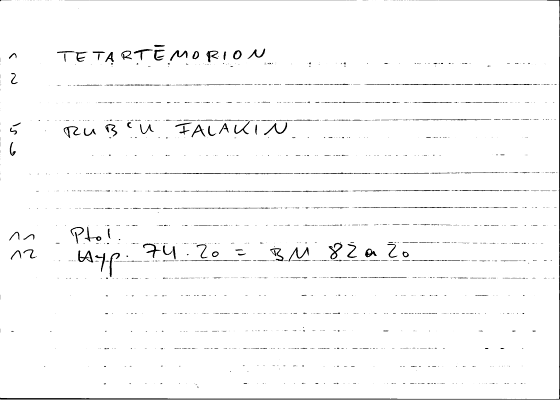 1 TETARTĒMORION
2
5 RUB‘U FALAKIN
6
11 Ptol.
12 Hyp. 74.20 = BM 82a20